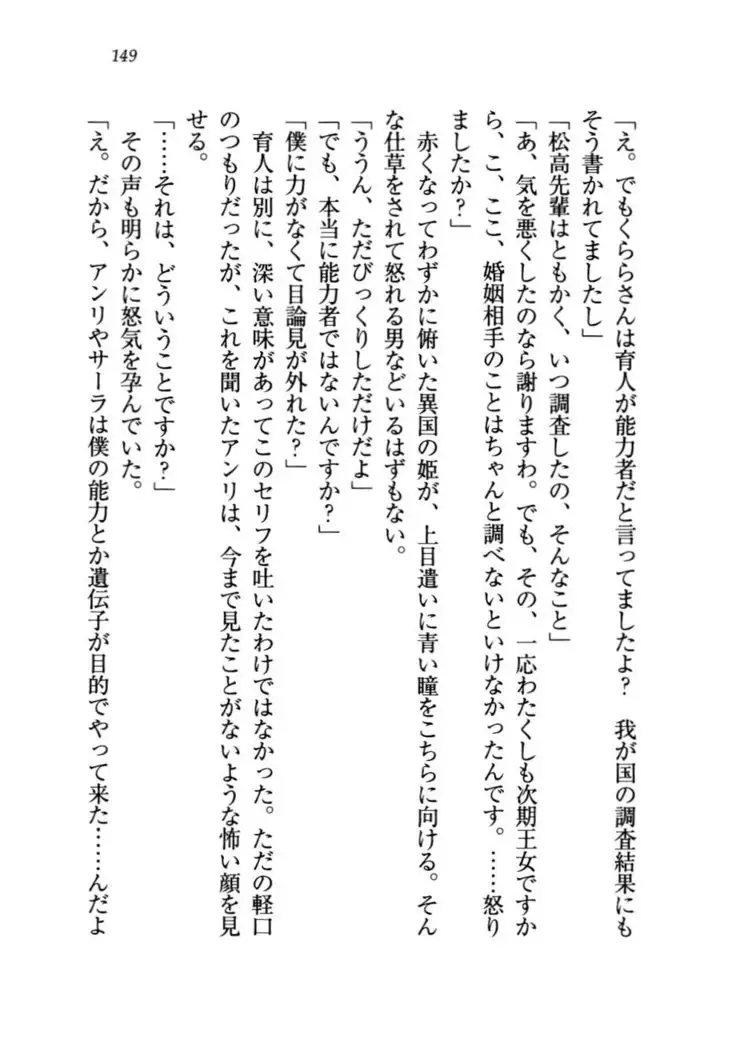 149
「え。でもくららさんは育人が能力者だと言ってましたよ？　我が国の調査結果にも
そう書かれてましたし」
「松高先輩はともかく、いつ調査したの、そんなこと」
「あ、気を悪くしたのなら謝りますわ。でも、その、一応わたくしも次期王女ですか
ら、こ、ここ、婚姻相手のことはちゃんと調べないといけなかったんです。……怒り
ましたか？」
赤くなってわずかに俯いた異国の姫が、上目遣いに青い瞳をこちらに向ける。そん
な仕草をされて怒れる男などいるはずもない。
「ううん、ただびっくりしただけだよ」
「でも、本当に能力者ではないんですか？」
「僕に力がなくて目論見が外れた？」
育人は別に、深い意味があってこのセリフを吐いたわけではなかった。ただの軽口
のつもりだったが、これを聞いたアンリは、今まで見たことがないような怖い顔を見
せる。
「……それは、どういうことですか？」
その声も明らかに怒気を孕んでいた。
「え。だから、アンリやサーラは僕の能力とか遺伝子が目的でやって来た……んだよ